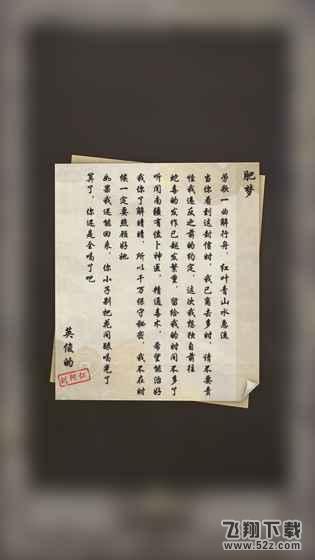 肥梦
劳歌一曲解行舟，红叶青山水急流
当你看到这封信时，我已离去多时，请不要责
怪我违反之前的约定，这次我想独自前往
蛇毒的发作已越发繁重，留给我的时间不多了
听闻南疆有位卜神医，精通毒术，希望能治好
我你了解晴晴，所以千万保守秘密，我不在时
候一定要照顾好她
如果我还能回来，你小子别把花间眠喝光了
算了，你还是全喝了吧
英俊的
刘阿仁
飞翔下载
www.52z.com